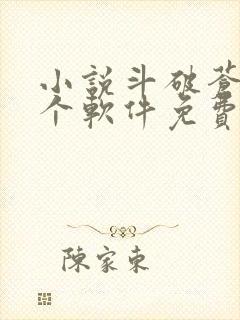 小說斗破蒼
个軟件免費
陳家東